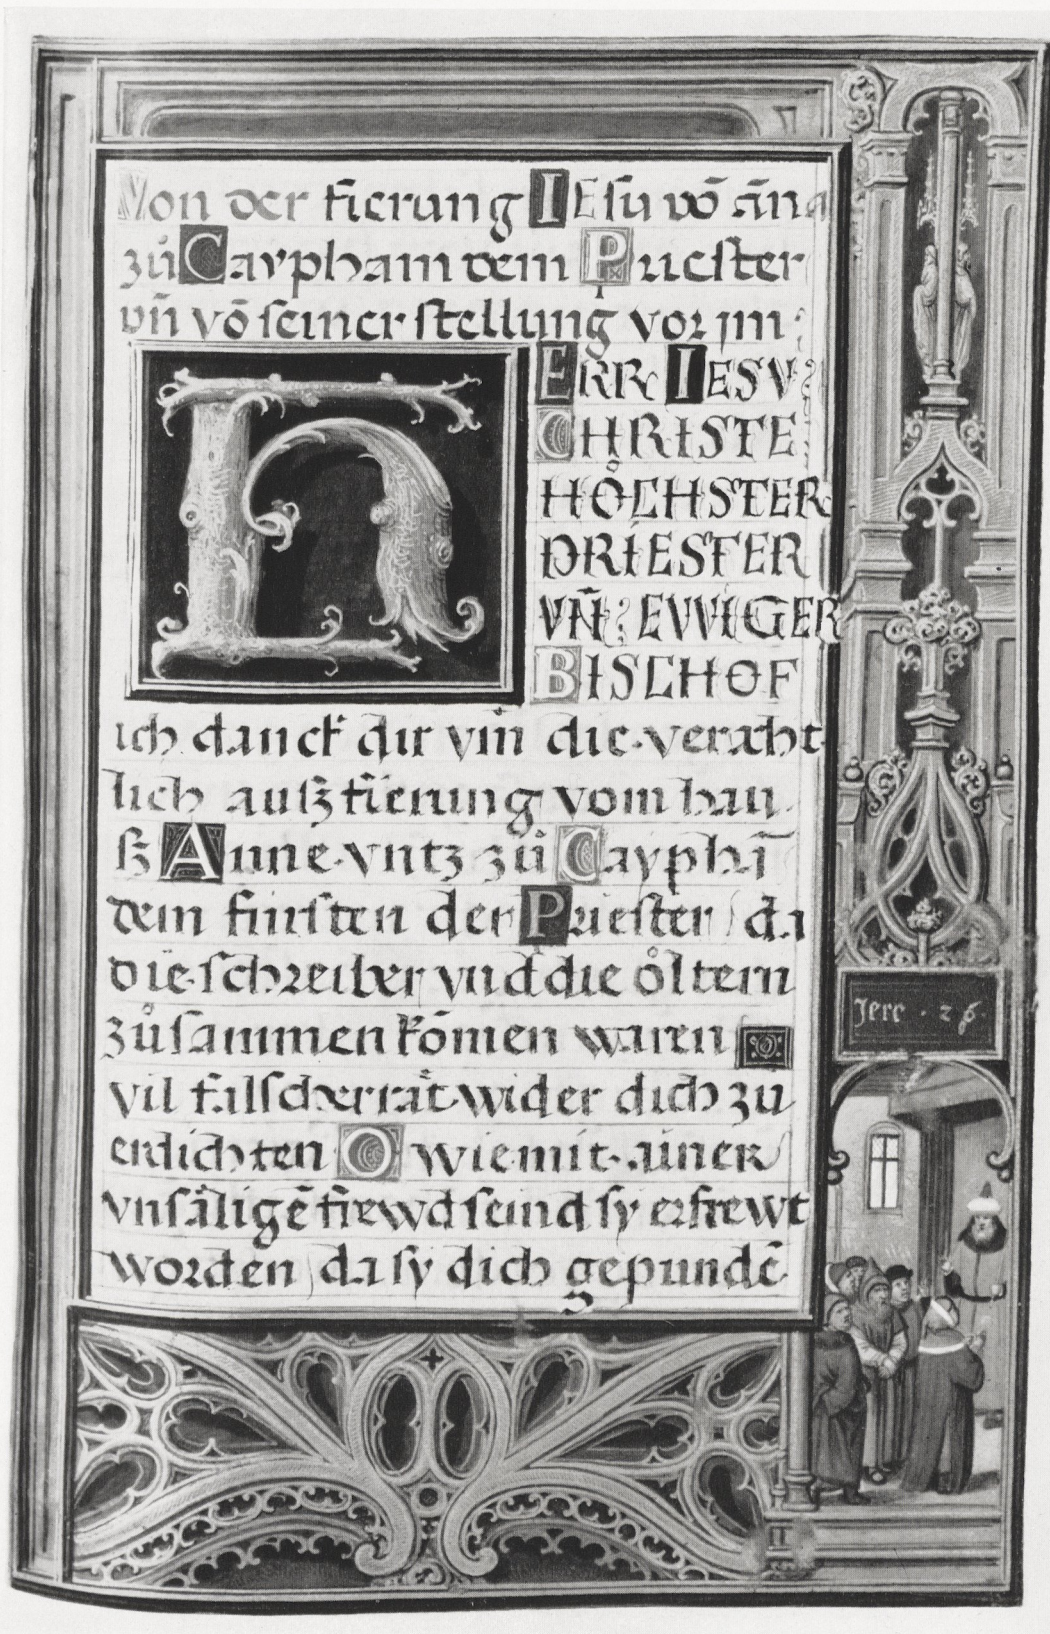 Von der fierung IESu võ ãna
zů Caypham dem Priester
vñ võ seiner stellung vor jm
H ERR IESV
CHRISTE
HÖCHSTER
PRIESTER
VÑ EWIGER
BISCHOF
ich danck dir vm̃ die veracht
lich außfierung vom hau
ß Anne vntz zů Cayphã
dem fürsten der Priester / da
die schreiber vnd die öltern
zůsammen kõmen waren
vil falscher rät wider dich zů
erdichten O wie mit ainer
vnsäligẽ frewd seind sy erfrewt
worden / da sy dich gepundẽ
Jere · 26 ·